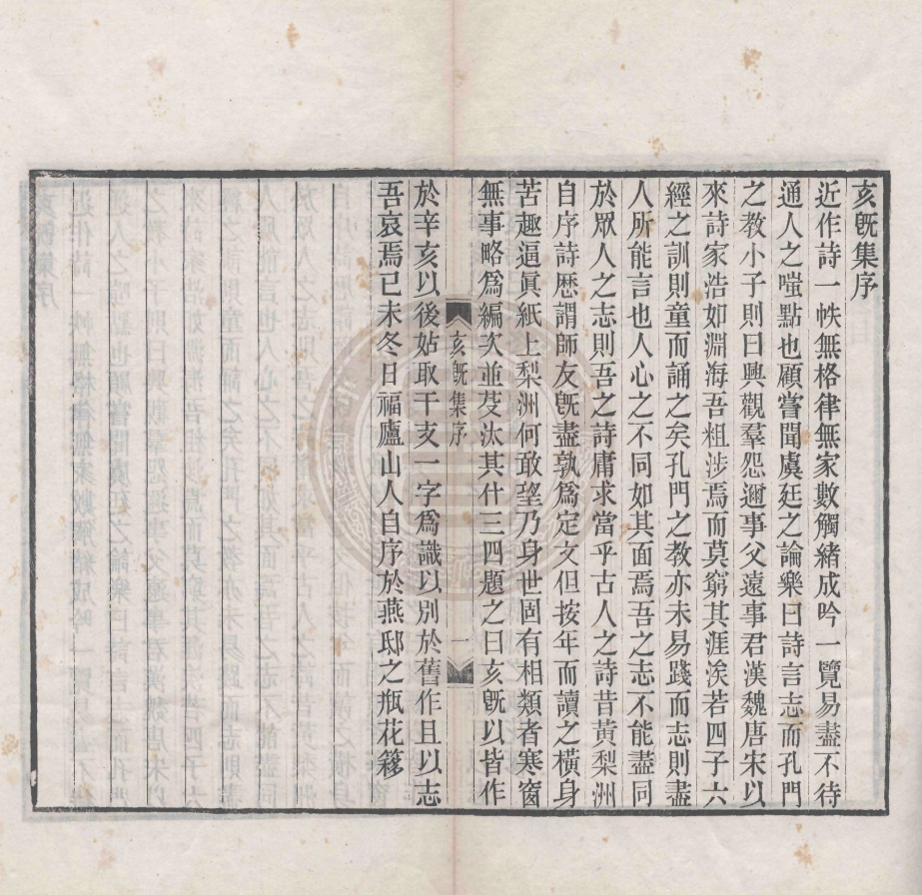 亥旣集序
近作詩一帙無格律無家數觸緖成吟一覽易盡不待
通人之嗤點也顧嘗聞虞廷之論樂曰詩言志而孔門
之教小子則曰興觀羣怨邇事父遠事君漢魏唐宋以
來詩家浩如淵海吾粗涉焉而莫窮其涯涘若四子六
經之訓則童而誦之矣孔門之教亦未易踐而志則盡
人所能言也人心之不同如其面焉吾之志不能盡同
於眾人之志則吾之詩庸求當乎古人之詩昔黃梨洲
自序詩歷謂師友旣盡孰爲定文但按年而讀之橫身
苦趣逼眞紙上梨洲何敢望乃身世固有相類者寒窗
無事略爲編次並芟汰其什三四題之曰亥旣以皆作
亥旣集序
一
於辛亥以後姑取干支一字爲識以別於舊作且以志
吾哀焉已未冬日福廬山人自序於燕邸之瓶花簃